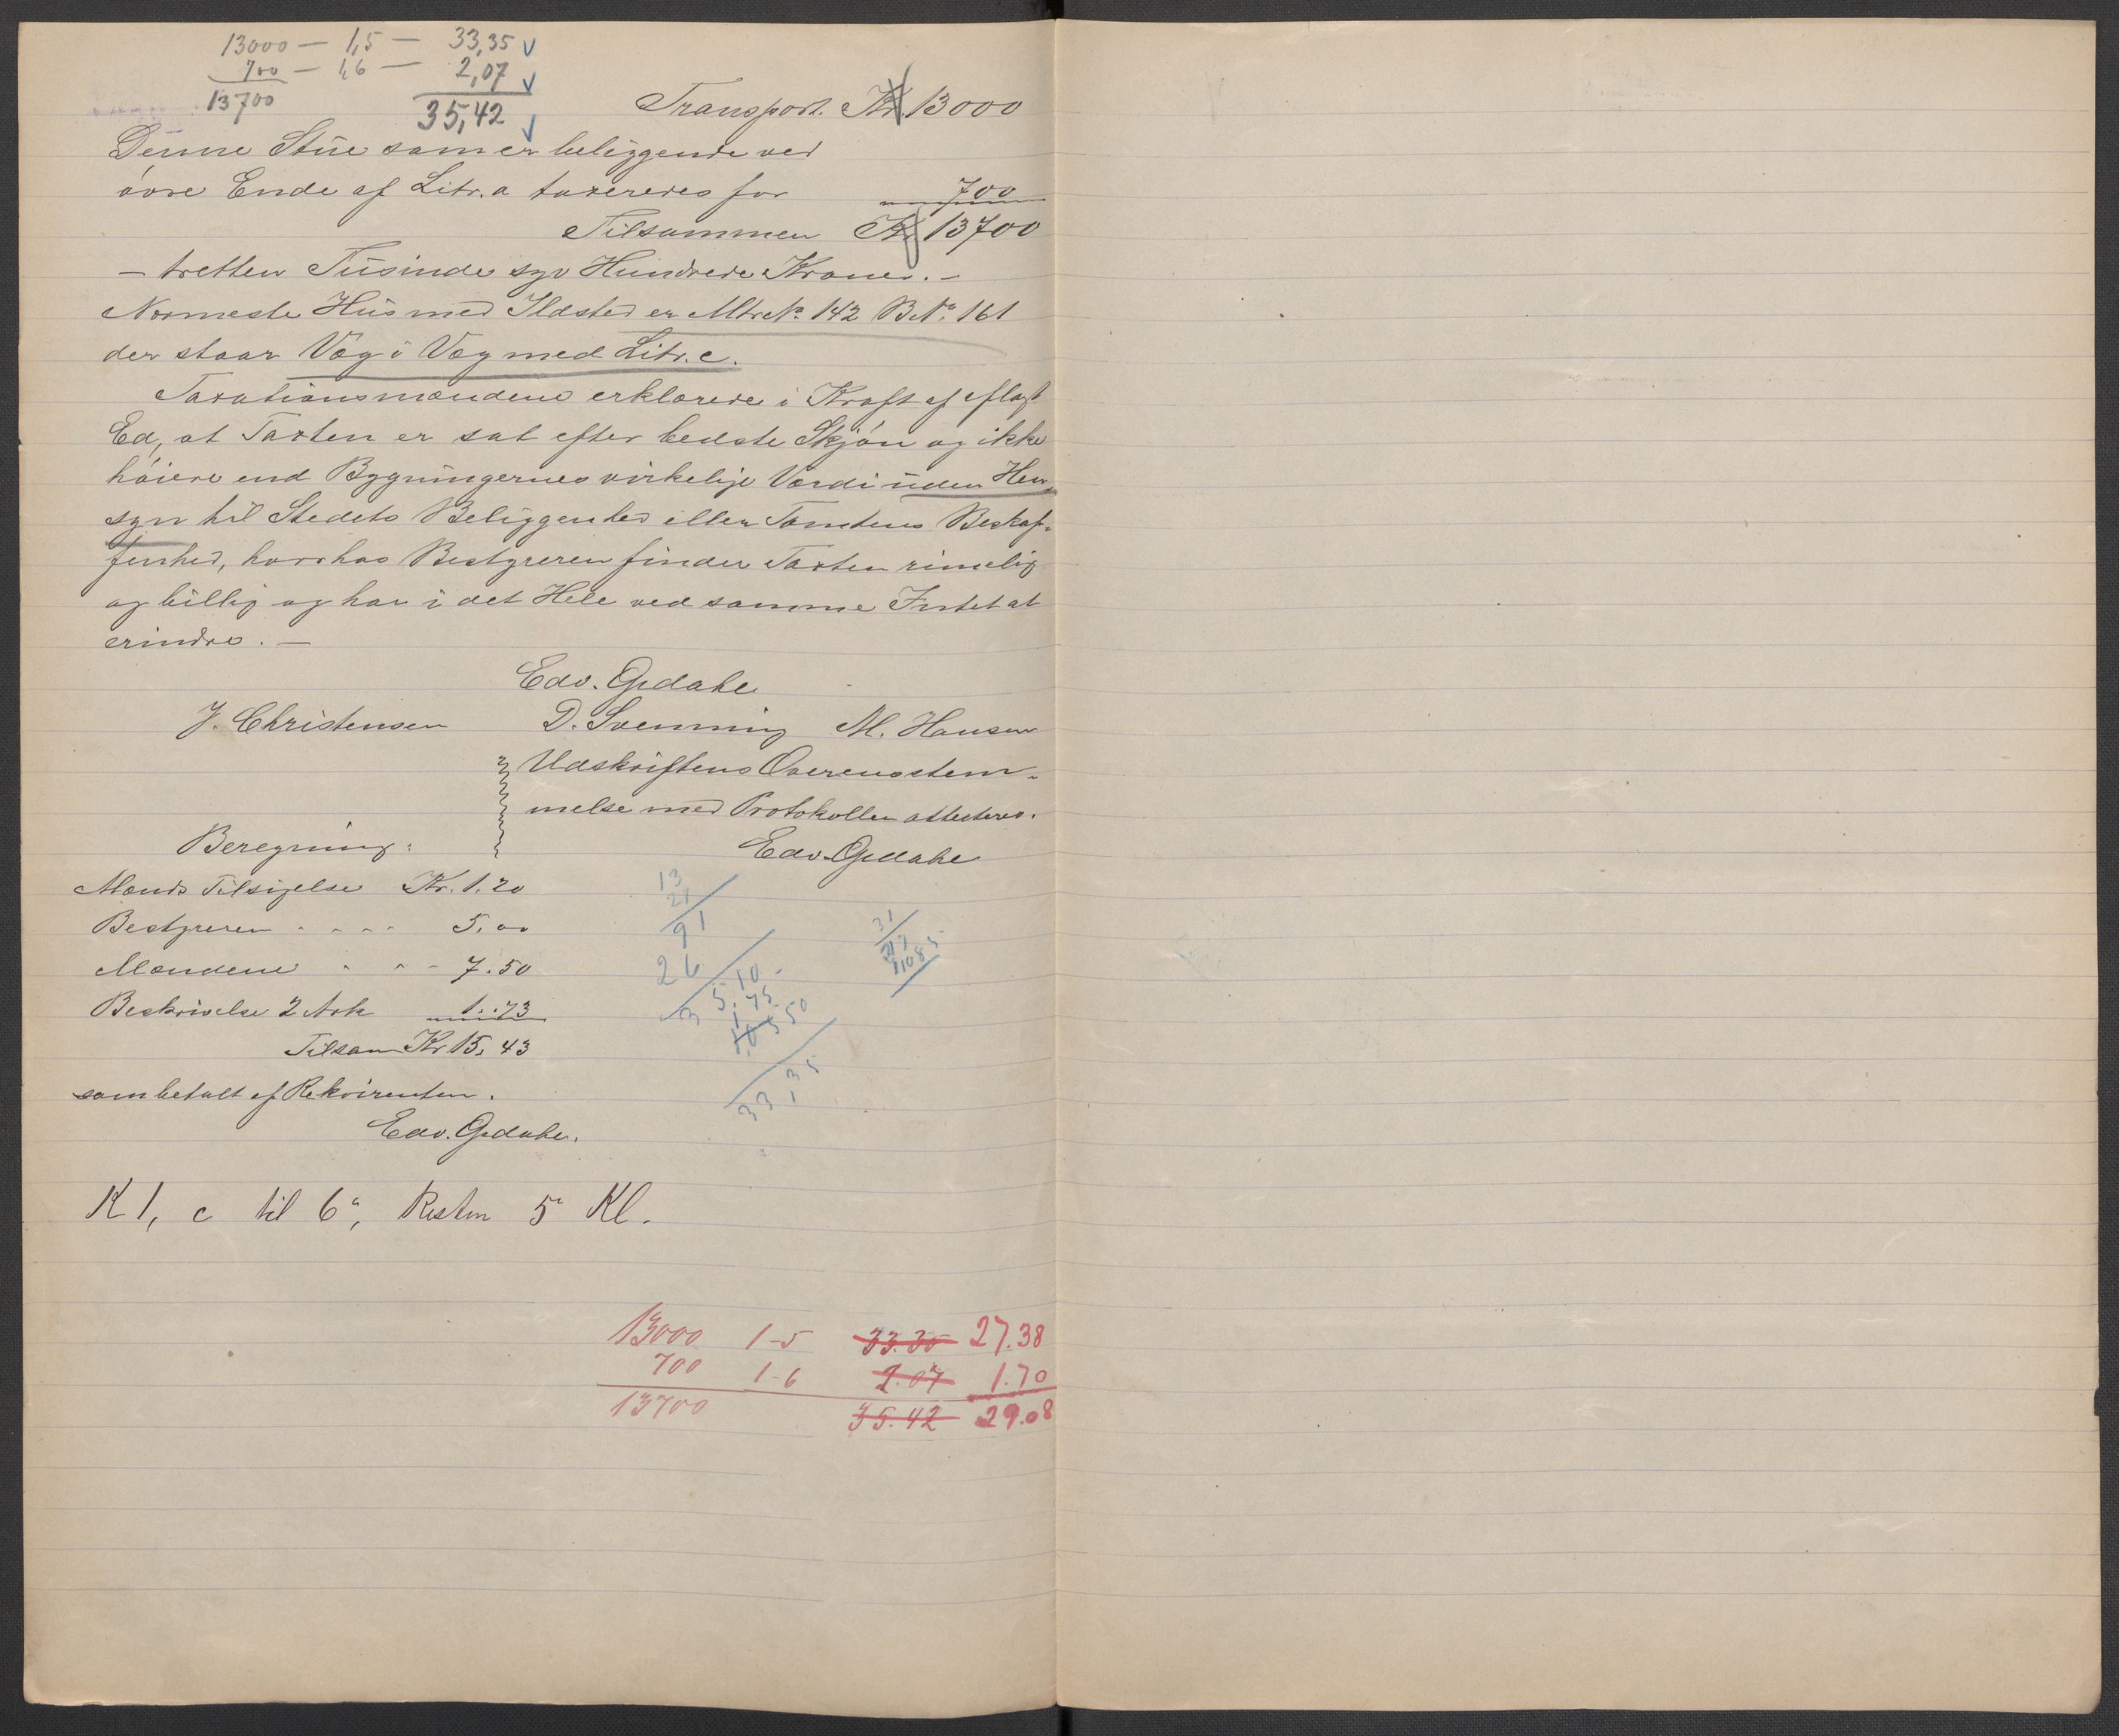 13000 — 1,5 — 33,35 √
700 — 1,6 — 2,07 √
13700 35,42 √
Transport. Kr. 13000
Denne Stue som er beliggende ved
övre Ende af Litr. a taxeredes for 700
Tilsammen Kr 13700
— tretten Tusinde syv Hundrede Kroner. —
Nærmeste Hus med Ildsted er Mtr № 142 B. № 161
der staar Væg i Væg med Litr. c.
Taxationsmændene erklærede i Kraft af aflagt
Ed, at Taxten er sat efter bedste Skjön og ikke
höiere end Bygningernes virkelige Værdi uden Hen-
syn til Stedets Beliggenhed eller Tomtens Beskaf-
fenhed, hvorhos Bestyreren finder Taxten rimelig
og billig og har i det Hele ved samme Intet at
erindre. —
Edv.
J. Christensen D. Svenning M. Hansen
Udskriftens Overensstem-
melse med Protokollen attesteres.
Beregning: Edv.
Mænds Tilsigelse Kr. 1.20
Bestyreren 5.00
Mændene 7.50
Beskrivelse 2 Ark 1.73
Tilsam Kr 15,43
som betalt af Rekvirenten.
Edv.
13
21
91
26
5.10
1.75
33,35
31
K 1, c til 6", Resten 5" Kl.
13000 1-5 33.35 27.38
700 1-6 2.07 1.70
13700 35.42 29.08